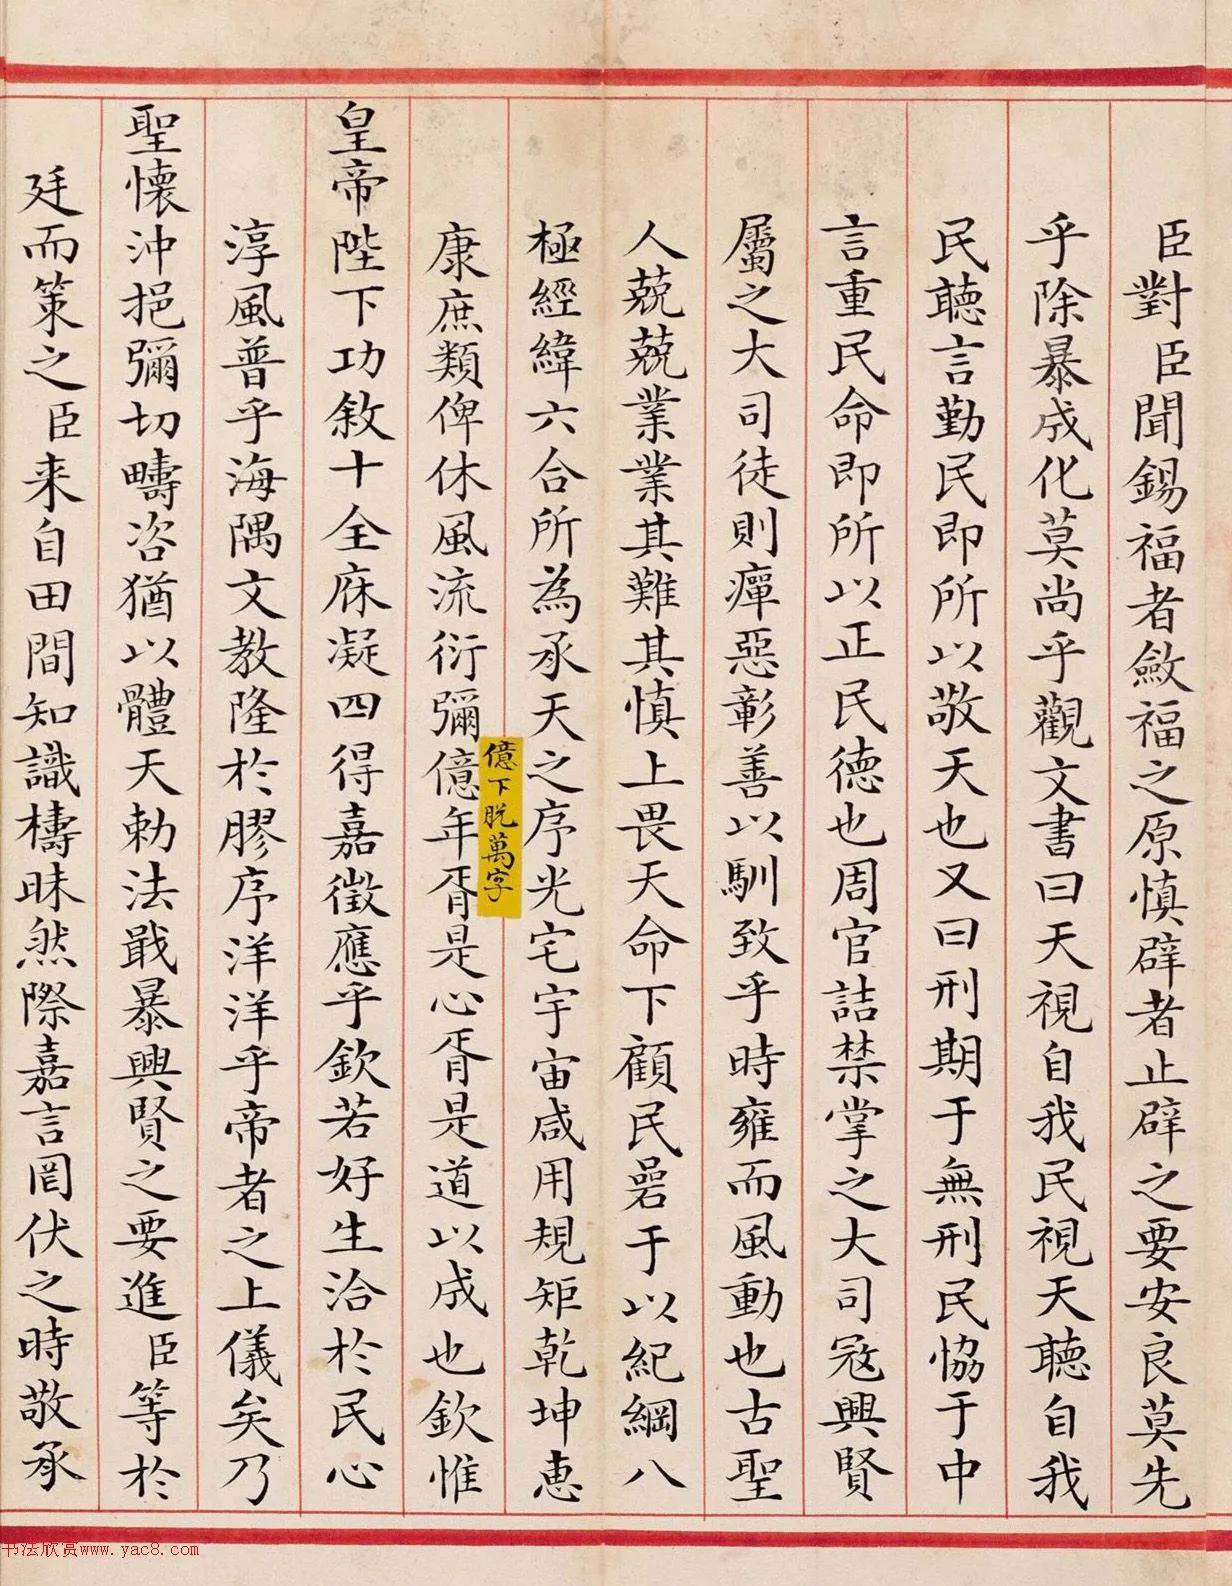 臣對臣聞錫福者斂福之原慎辟者止辟之要安良莫先
乎除暴成化莫尚乎觀文書曰天視自我民視天聽自我
民聽言勤民即所以敬天也又曰刑期于無刑民協于中
言重民命即所以正民德也周官詰禁掌之大司寇興賢
屬之大司徒則癉惡彰善以馴致乎時雍而風動也古聖
人兢兢業業其難其慎上畏天命下顧民碞于以紀綱八
極經緯六合所為承天之序光宅宇宙咸用規矩乾坤惠
億下脫萬字
康庶類俾休風流衍彌億年胥是心胥是道以成也欽惟
皇帝陛下功敘十全庥凝四得嘉徵應乎欽若好生洽於民心
淳風普乎海隅文教隆於膠序洋洋乎帝者之上儀矣乃
聖懷沖挹彌切疇咨猶以體天勅法戢暴興賢之要進臣等於
廷而策之臣来自田間知識檮昧然際嘉言罔伏之時敬承
书法欣赏www.yac8.com